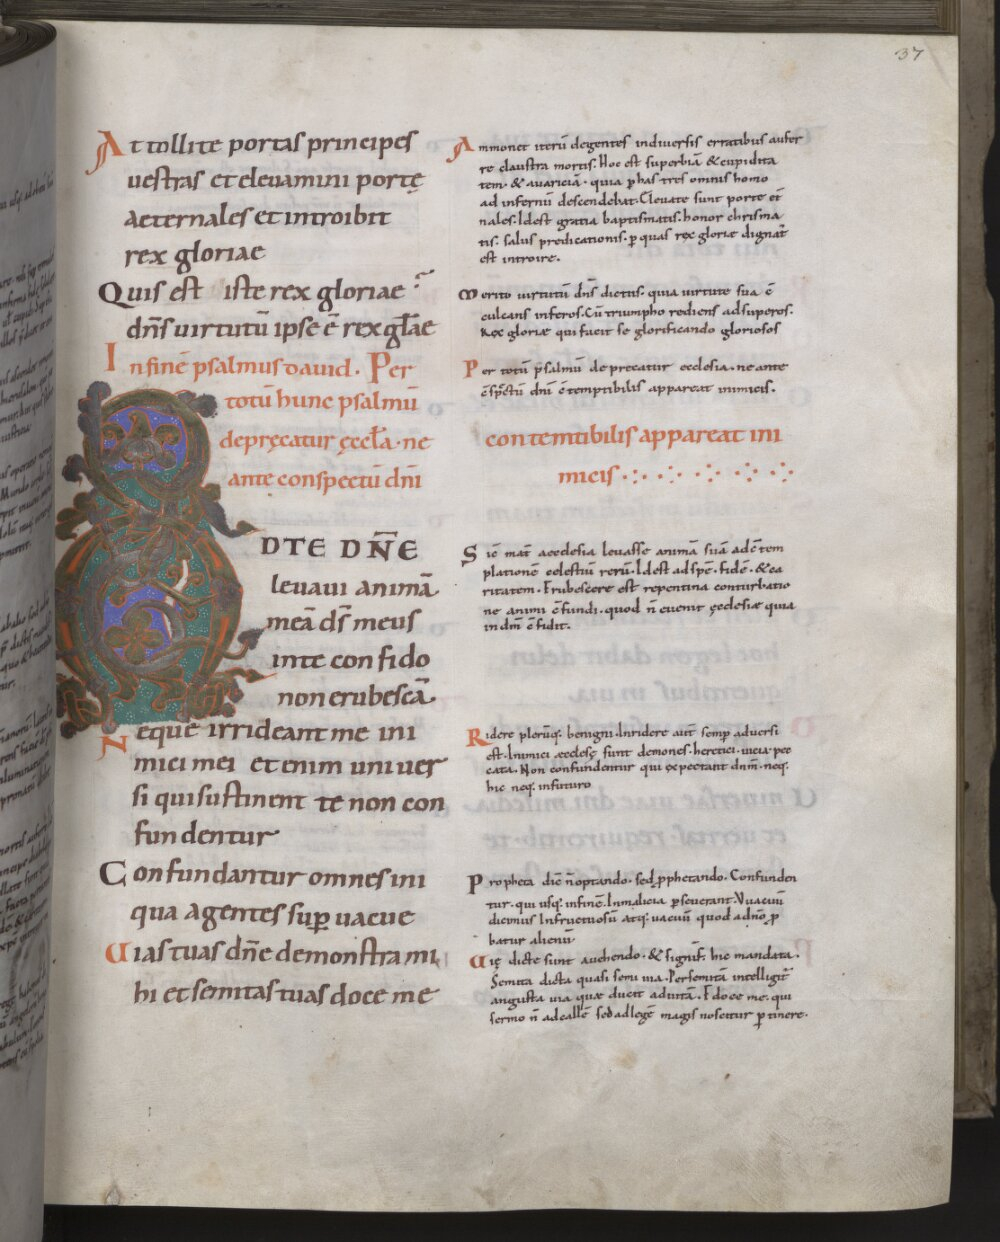 37
Attollite portas principes
uestras et eleuamini portę
aeternales et introibit
rex gloriae
Quis est iste rex gloriae
dn̄s uirtutū ipse ē rex gl̄ae
In finē psalmus dauid. Per
totū hunc psalmū
depręcatur ęccl̄a. ne
ante conspectū dn̄i
contemtibilis appareat ini
micis
AD TE DN̄E
leuaui animā
meā ds̄ meus
in te confido
non erubescā
Neque irrideant me ini
mici mei et enim uniuer
si qui sustinent te non con
fundentur
Confundantur omnes ini
qua agentes sup̱ uacue
Uias tuas dn̄e demonstra mi
hi et semitas tuas doce me
Ammonet iterū degentes in diuersis erratibus aufer
re claustra mortis. Hoc est superbiā & cupidita
tem. & auaricia. quia p̱ has tres omnis homo
ad infernū descendebat. Eleuate sunt porte et̄
nales. Idest gratia baptismatis. honor chrisma
tis. salus predicationis. p̱ quas rex gloriæ dignat̄
est introire.
Merito uirtutū dn̄s dictus. quia uirtute sua ē
culcans inferos. Cū triumpho rediens ad superos.
Rex gloriæ qui facit se glorificando gloriosos
Per totū psalmū deprecatur ecclesia. ne ante
c̄sp̄ctū dn̄i c̄temptibilis appareat inimicis.
Sic mat̄ aecclesia leuasse animā suā ad c̄tem
plationē celestiū rerū. Idest ad spē. fidē. & ca
ritatem. Erubescere est repentina conturbatio
ne animi c̄fundi. quod n̄ euenit ęcclesiæ quia
in dn̄o c̄fidit.
Ridere pleruq. benigni. Inridere aut̄ semp̱ aduersi
est. Inimici ecclesę sunt demones. heretici. uicia. pec
cata. Non confundentur qui expectant dnm̄. neq.
hic neq. in futuro
Propheta dic̄ n̄ optando. sed p̱phetando. Confunden
tur. qui usq. in finē. In malicia p̱seuerant. Vuacuū
dicimus Infructuosū atq. uacuū quod a dn̄o p̱
batur alienū
Uię dictę sunt a uehendo. & signif̄. hic mandata.
Semita dicta quasi semi uia. Per semitā intelligit̄
angusta uia quæ ducit ad uitā. Edoce me. qui
sermo n̄ ad callē sed ad legē magis noscitur p̱tinere.